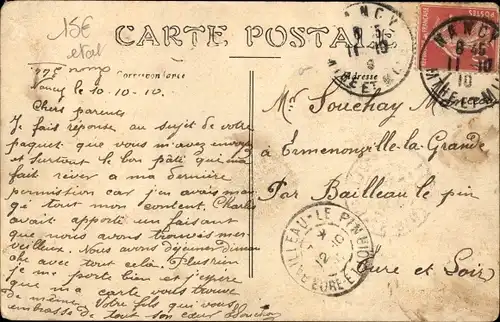 15€
etat
CARTE POSTALE
Correspondance
Adresse
Nancy le 10-10-10.
Chers parents
Je fais réponse au sujet de votre
paquet que vous m'avez envoyé
et surtout le bon pâté qui m'a
fait rêver a ma dernière
permission car j'en avais man
gé tout mon content. Charles
avait apporté un faisant
que nous avons trouvés mer-
veilleux. Nous avons déjeuner diman
che avec tout cela. Plus rien
je me porte bien et j'espère
que ma carte vous trouve
de même. Votre fils qui vous
embrasse de tout son cœur
Mr Souchay
à Ermenonville-la-Grande
Par Bailleau le pin
Eure et Loir
NANCY
11-10
10
MTHE ET MLLE
NANCY
8-45
11-10
10
MTHE ET MLLE
POSTES
BAILLEAU-LE PIN
12-10
EURE-ET-LOIR